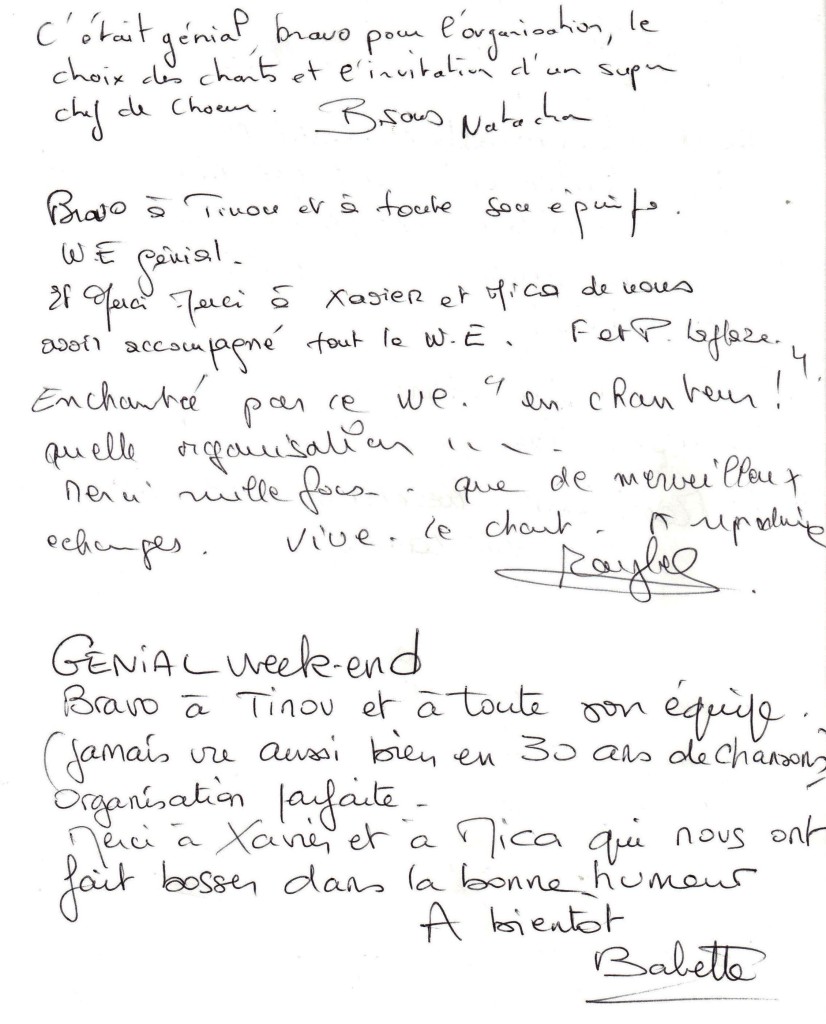 C'était génial, bravo pour l'organisation, le
choix des chants et l'invitation d'un super
chef de Choeur. Bisous Natacha
Bravo à Tinou et à toute son équipe.
W.E génial.
Et Merci Merci à Xavier et Mica de nous
avoir accompagné tout le W.E. F et P.
Enchantée par ce we. "en chanteur!"
quelle organisation ...
Merci mille fois - . que de merveilleux
echanges. Vive. le chant. A reproduire
GENIAL week-end
Bravo à Tinou et à toute son équipe.
(jamais vu aussi bien en 30 ans de chansons)
Organisation parfaite -
Merci à Xavier et à Mica qui nous ont
fait bosser dans la bonne humeur
A bientôt
Babette